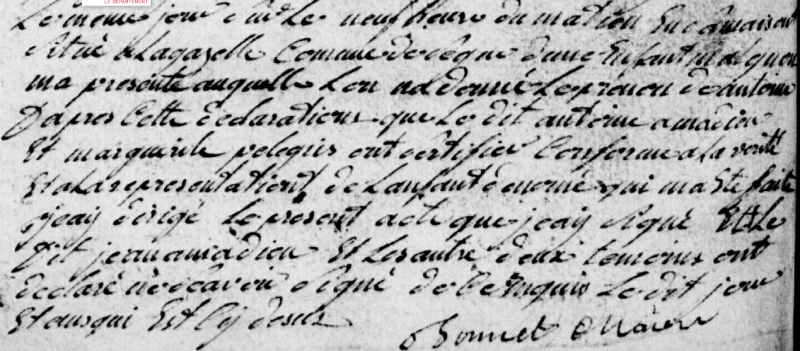 LE DÉPARTEMENT
Le meme jour dhier Le neuf heure du matin En Sa maison
situé a Lagazelle Commune de deque dun Enfant mal quon
ma presenté auquelle Lon na donné Le prenom de antoine
Dapres Cette declarations que Le dit antoine amadieu
Et marguerite pelegris ont Certifier Conforme a la verité
Et a La representationt de Lanfant denomé qui ma Ete faite
jeay dirigé Le present acte que jeay Signé Et Le
dit jean amadieu Et Les autre deux temoins ont
declaré ne Savoir Signé de Ce requis Le dit jour
Et an qui Est Cy desus
Bonnet Maire